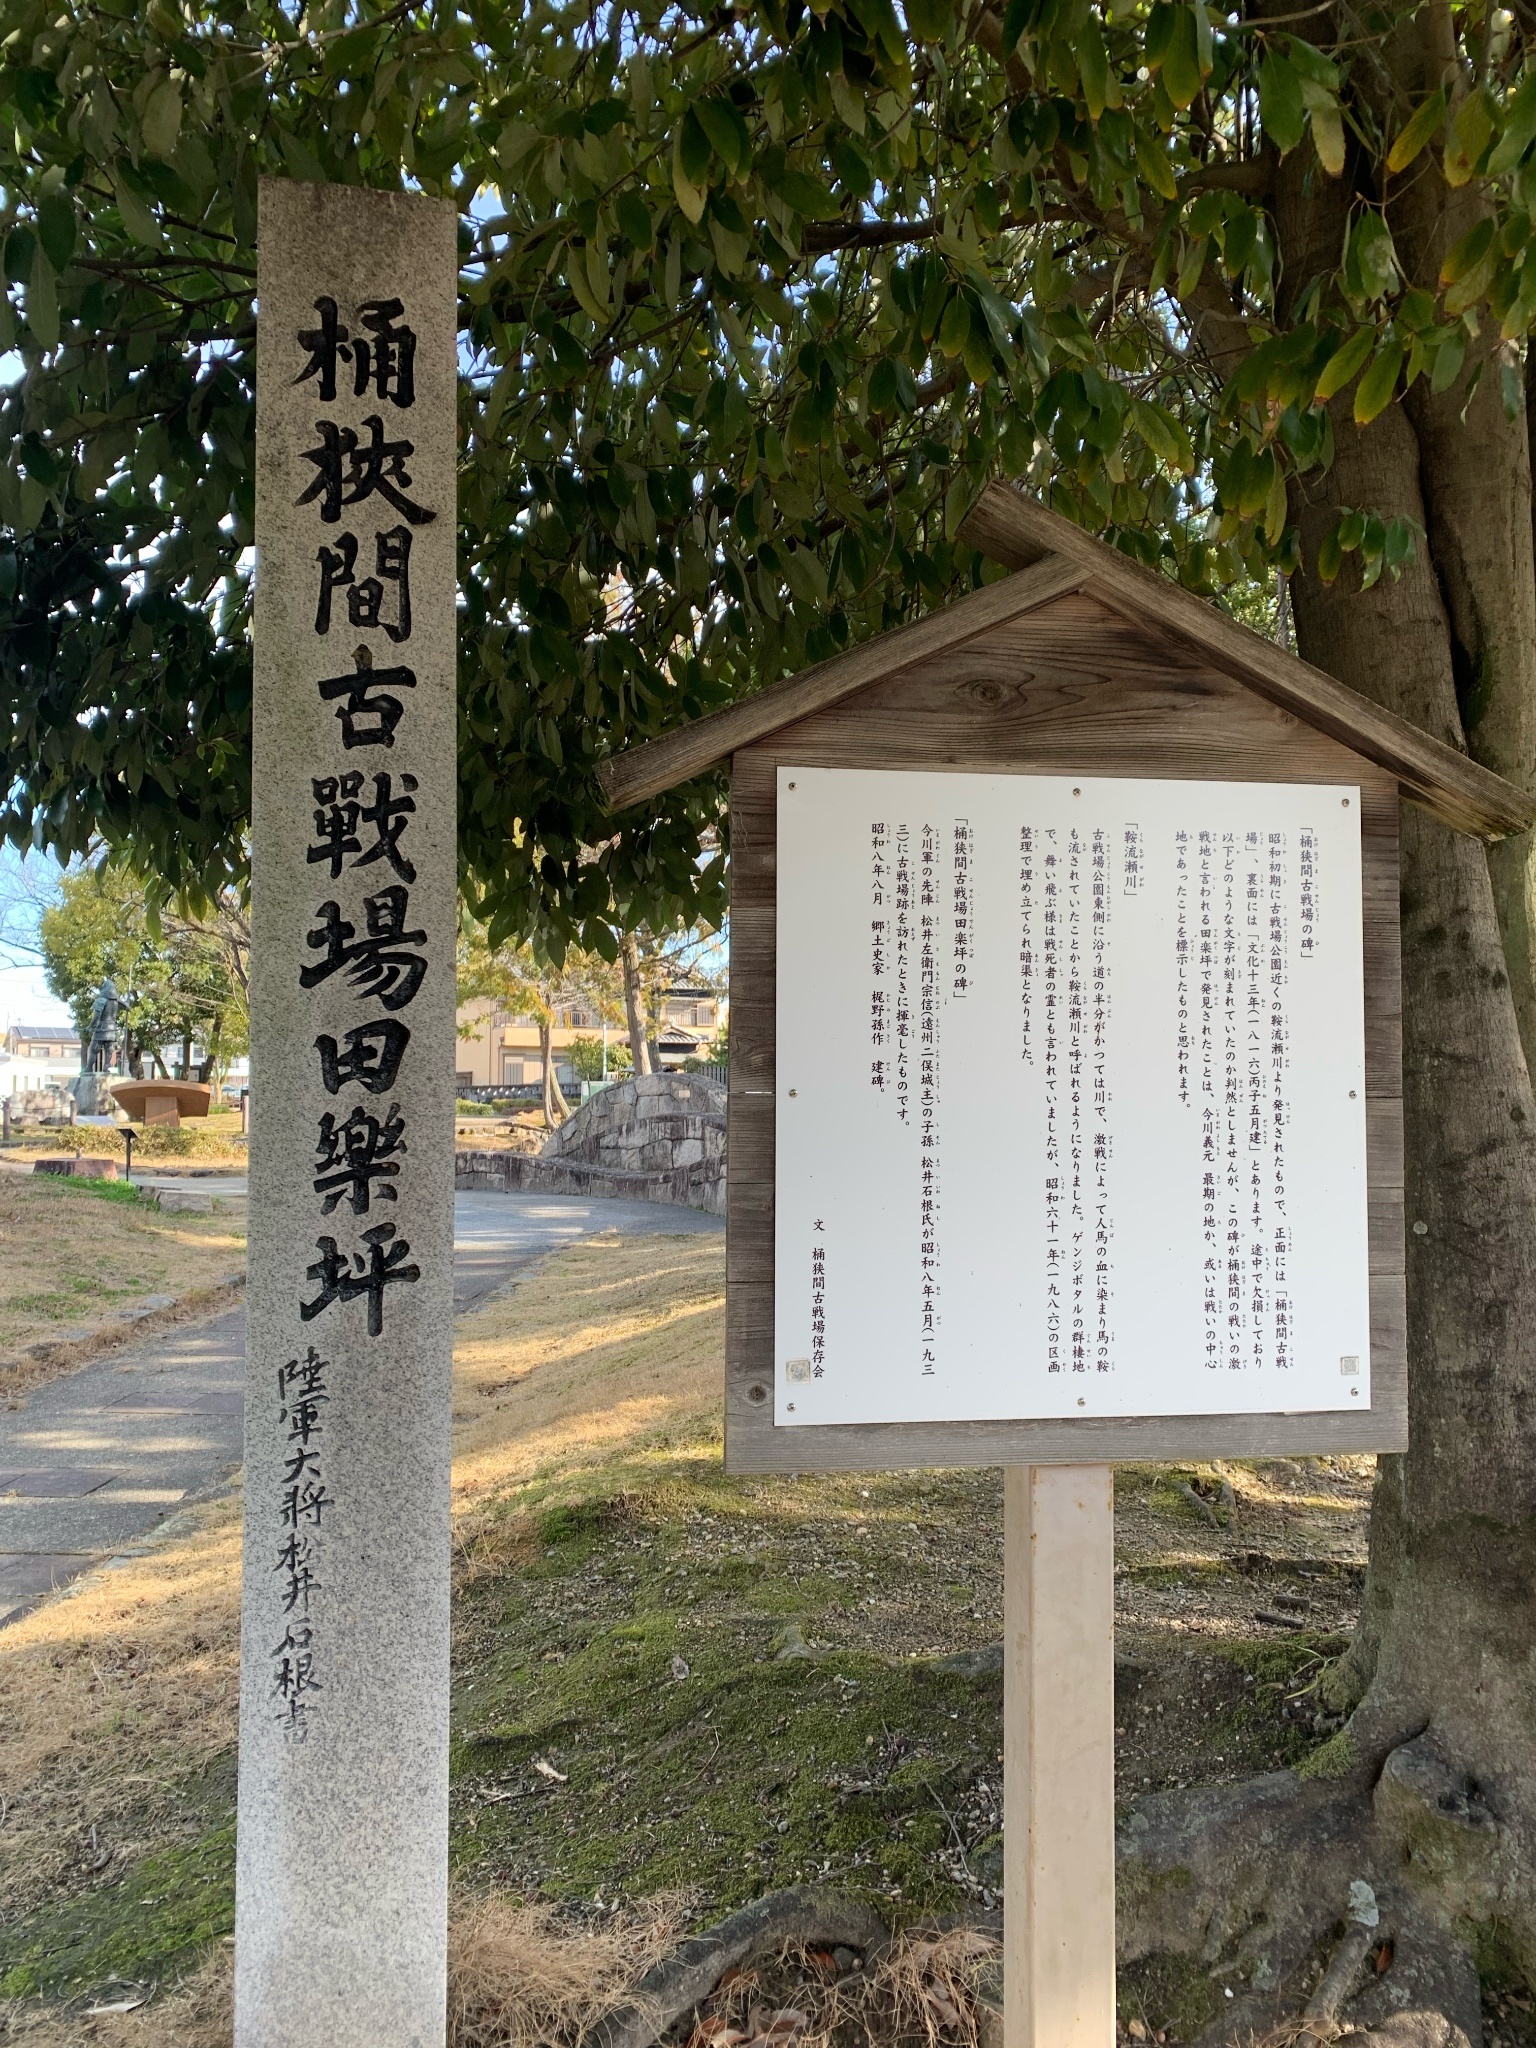 桶狹間古戰場田樂坪
陸軍大将松井石根書
「桶狭間古戦場の碑」
昭和初期に古戦場公園近くの鞍流瀬川より発見されたもので、正面には「桶狭間古戦
場」、裏面には「文化十三年(一八一六)丙子五月建」とあります。途中で欠損しており
以下どのような文字が刻まれていたのか判然としませんが、この碑が桶狭間の戦いの激
戦地と言われる田楽坪で発見されたことは、今川義元 最期の地か、或いは戦いの中心
地であったことを標示したものと思われます。
「鞍流瀬川」
古戦場公園東側に沿う道の半分がかつては川で、激戦によって人馬の血に染まり馬の鞍
も流されていたことから鞍流瀬川と呼ばれるようになりました。ゲンジボタルの群棲地
で、舞い飛ぶ様は戦死者の霊とも言われていましたが、昭和六十一年(一九八六)の区画
整理で埋め立てられ暗渠となりました。
「桶狭間古戦場田楽坪の碑」
今川軍の先陣 松井左衛門宗信(遠州二俣城主)の子孫 松井石根氏が昭和八年五月(一九三
三)に古戦場跡を訪れたときに揮毫したものです。
昭和八年八月 郷土史家 梶野孫作 建碑。
文 桶狭間古戦場保存会